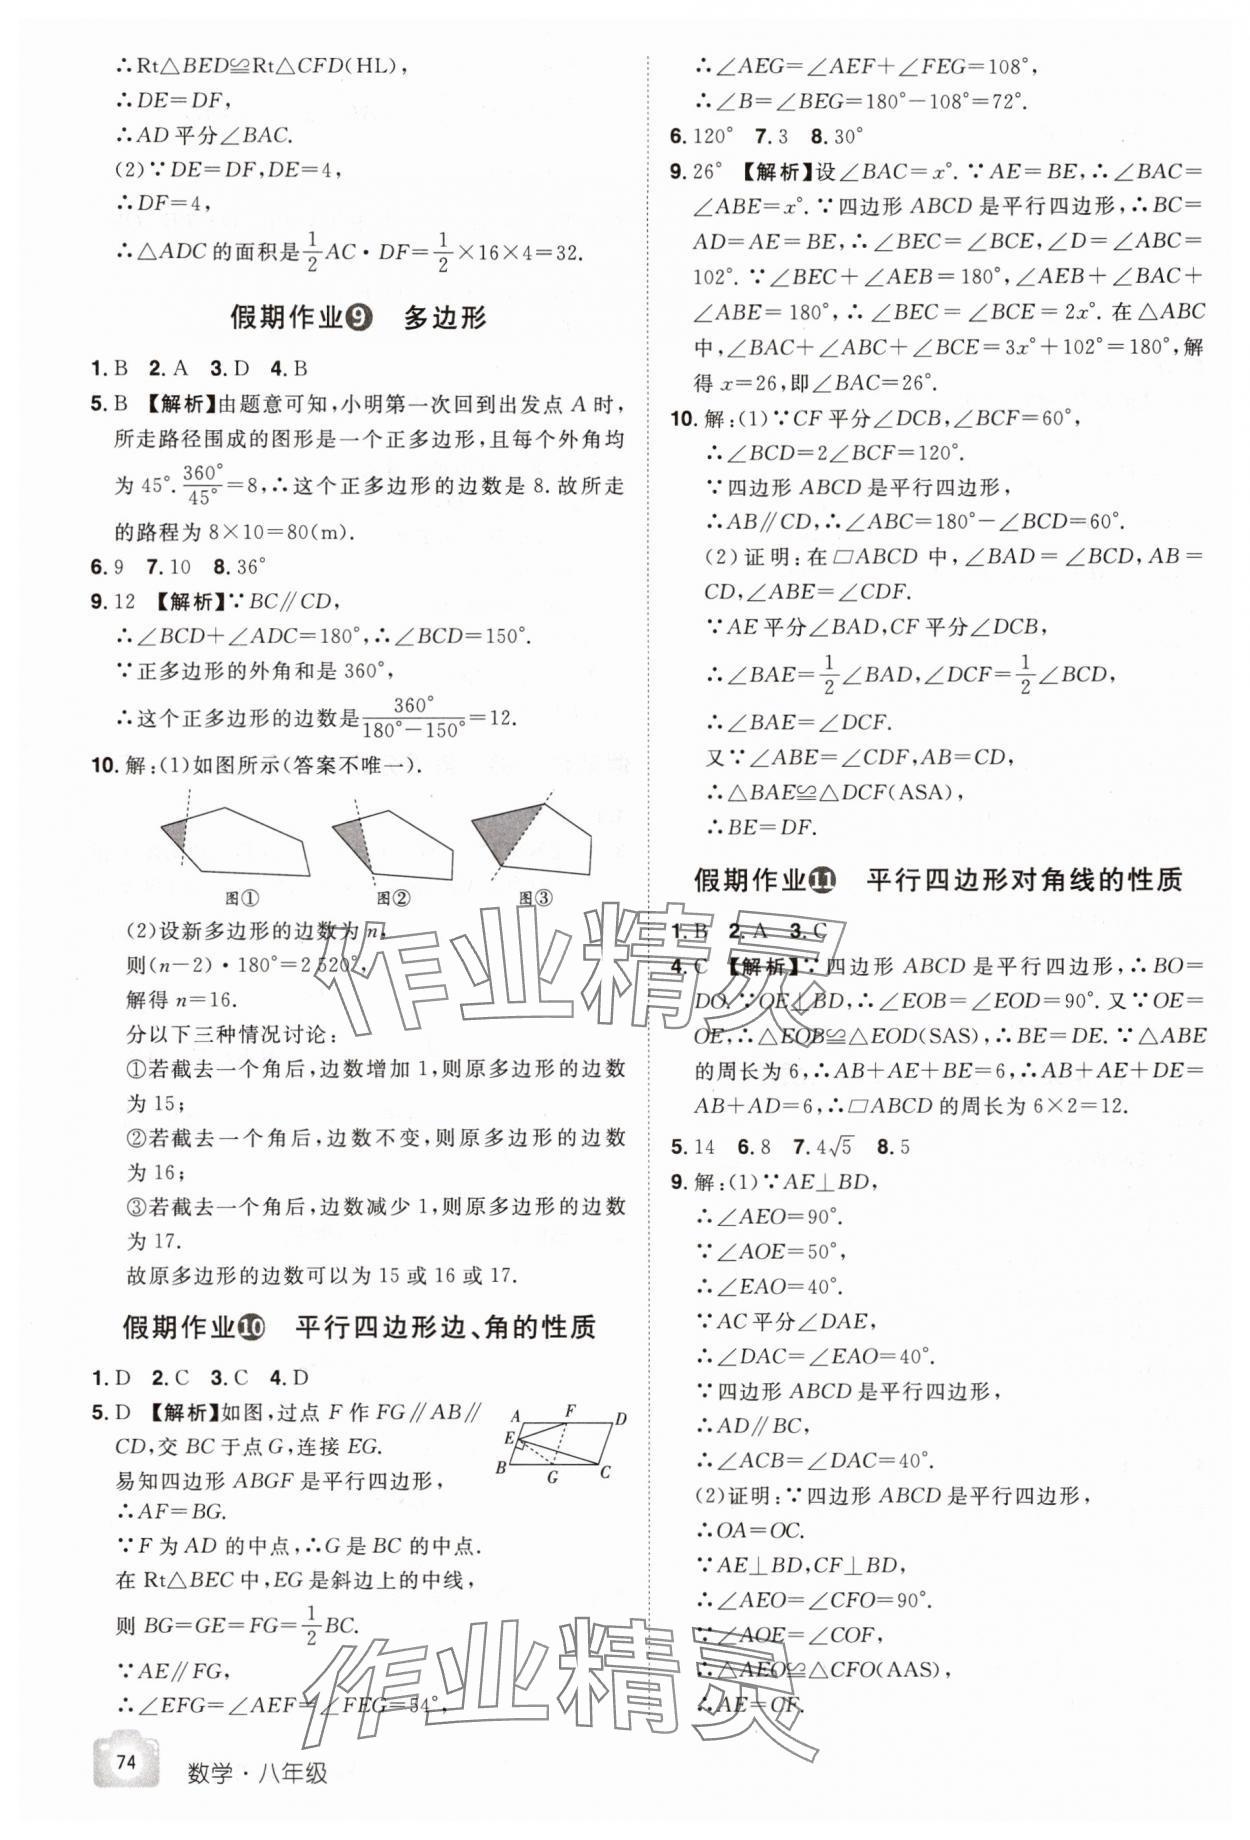 ∴Rt△BED≌Rt△CFD(HL),
∴DE=DF,
∴AD平分∠BAC.
(2)∵DE=DF,DE=4,
∴DF=4,
∴△ADC的面积是1/2AC·DF=1/2×16×4=32.
假期作业9 多边形
1.B 2.A 3.D 4.B
5.B 【解析】由题意可知,小明第一次回到出发点A时,
所走路径围成的图形是一个正多边形,且每个外角均
为45°.360°/45°=8,∴这个正多边形的边数是8.故所走
的路程为8×10=80(m).
6.9 7.10 8.36°
9.12 【解析】∵BC∥CD,
∴∠BCD+∠ADC=180°,∴∠BCD=150°.
∵正多边形的外角和是360°,
∴这个正多边形的边数是360°/(180°-150°)=12.
10.解:(1)如图所示(答案不唯一).
图① 图② 图③
(2)设新多边形的边数为n,
则(n-2)·180°=2 520°,
解得n=16.
分以下三种情况讨论:
①若截去一个角后,边数增加1,则原多边形的边数
为15;
②若截去一个角后,边数不变,则原多边形的边数
为16;
③若截去一个角后,边数减少1,则原多边形的边数
为17.
故原多边形的边数可以为15或16或17.
假期作业10 平行四边形边、角的性质
1.D 2.C 3.C 4.D
5.D 【解析】如图,过点F作FG∥AB∥
CD,交BC于点G,连接EG.
易知四边形ABGF是平行四边形,
∴AF=BG.
A F D
E
B G C
∵F为AD的中点,∴G是BC的中点.
在Rt△BEC中,EG是斜边上的中线,
则BG=GE=FG=1/2BC.
∵AE∥FG,
∴∠EFG=∠AEF=∠FEG=54°,
74
数学·八年级
∴∠AEG=∠AEF+∠FEG=108°,
∴∠B=∠BEG=180°-108°=72°.
6.120° 7.3 8.30°
9.26° 【解析】设∠BAC=x°.∵AE=BE,∴∠BAC=
∠ABE=x°.∵四边形ABCD是平行四边形,∴BC=
AD=AE=BE,∴∠BEC=∠BCE,∠D=∠ABC=
102°.∵∠BEC+∠AEB=180°,∠AEB+∠BAC+
∠ABE=180°,∴∠BEC=∠BCE=2x°.在△ABC
中,∠BAC+∠ABC+∠BCE=3x°+102°=180°,解
得x=26,即∠BAC=26°.
10.解:(1)∵CF平分∠DCB,∠BCF=60°,
∴∠BCD=2∠BCF=120°.
∵四边形ABCD是平行四边形,
∴AB∥CD,∴∠ABC=180°-∠BCD=60°.
(2)证明:在□ABCD中,∠BAD=∠BCD,AB=
CD,∠ABE=∠CDF.
∵AE平分∠BAD,CF平分∠DCB,
∴∠BAE=1/2∠BAD,∠DCF=1/2∠BCD,
∴∠BAE=∠DCF.
又∵∠ABE=∠CDF,AB=CD,
∴△BAE≌△DCF(ASA),
∴BE=DF.
假期作业11 平行四边形对角线的性质
1.B 2.A 3.C
4.C 【解析】∵四边形ABCD是平行四边形,∴BO=
DO.∵OE⊥BD,∴∠EOB=∠EOD=90°.又∵OE=
OE,∴△EOB≌△EOD(SAS),∴BE=DE.∵△ABE
的周长为6,∴AB+AE+BE=6,∴AB+AE+DE=
AB+AD=6,∴□ABCD的周长为6×2=12.
5.14 6.8 7.4√5 8.5
9.解:(1)∵AE⊥BD,
∴∠AEO=90°.
∵∠AOE=50°,
∴∠EAO=40°.
∵AC平分∠DAE,
∴∠DAC=∠EAO=40°.
∵四边形ABCD是平行四边形,
∴AD∥BC,
∴∠ACB=∠DAC=40°.
(2)证明:∵四边形ABCD是平行四边形,
∴OA=OC.
∵AE⊥BD,CF⊥BD,
∴∠AEO=∠CFO=90°.
∵∠AOE=∠COF,
∴△AEO≌△CFO(AAS),
∴AE=CF.
作业精灵
作业精灵